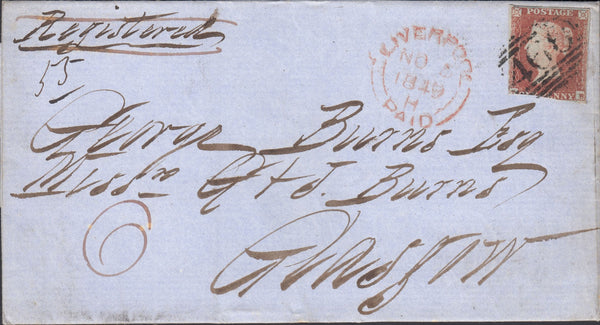 Registered
55
LIVERPOOL
NO 5
1849
H
PAID
POSTAGE
466
PENNY
George Burns Esq
Messrs G & J. Burns
6
Glasgow